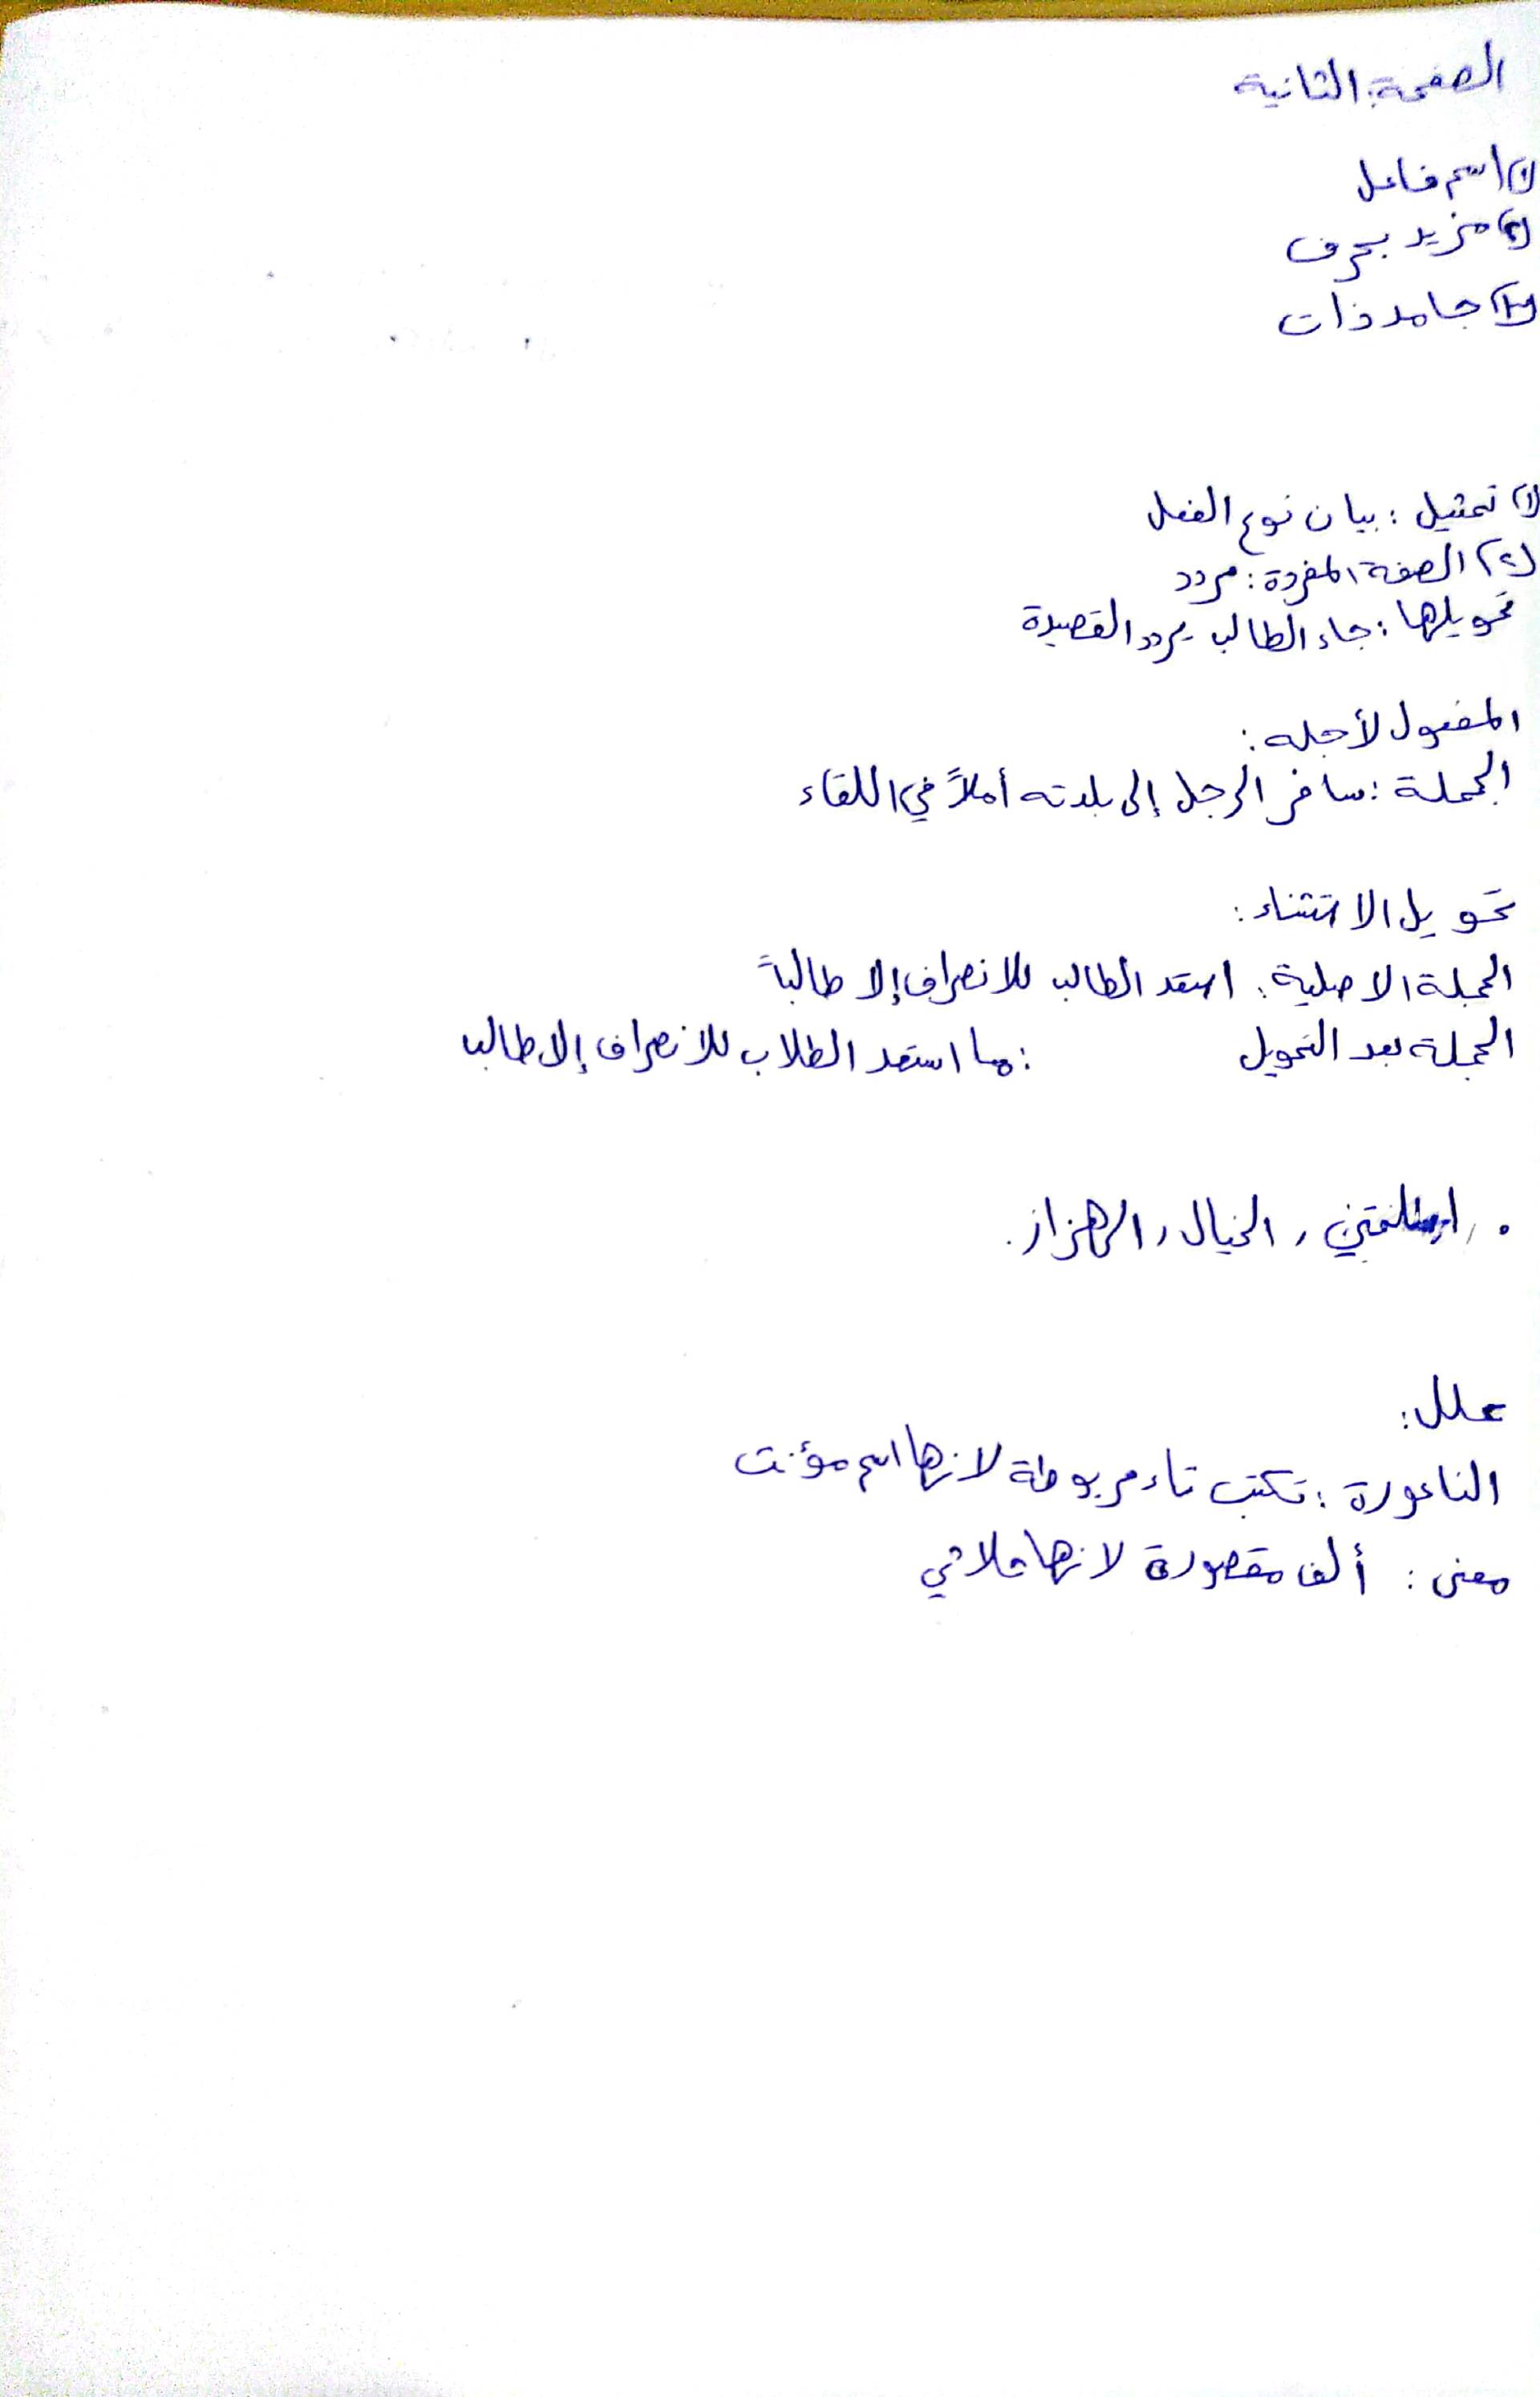 الصفحة: الثانية
١) اسم فاعل
٢) مزيد بحرف
٣) جامد ذات
١) تمثيل : بيان نوع الفعل
٢) الصفة المفردة : مردد
تحويلها : جاء الطالب يردد القصيدة
المفعول لأجله :
الجملة : سافر الرجل إلى بلدته أملاً في اللقاء
تحويل الاستثناء :
الجملة الاصلية : استعد الطالب للانصراف إلا طالباً
الجملة بعد التحويل : ما استعد الطلاب للانصراف إلا طالب
الخيال , الهزاز .
علل :
الناعورة : تكتب تاء مربوطة لانها اسم مؤنث
معنى : ألف مقصورة لانها ثلاثي